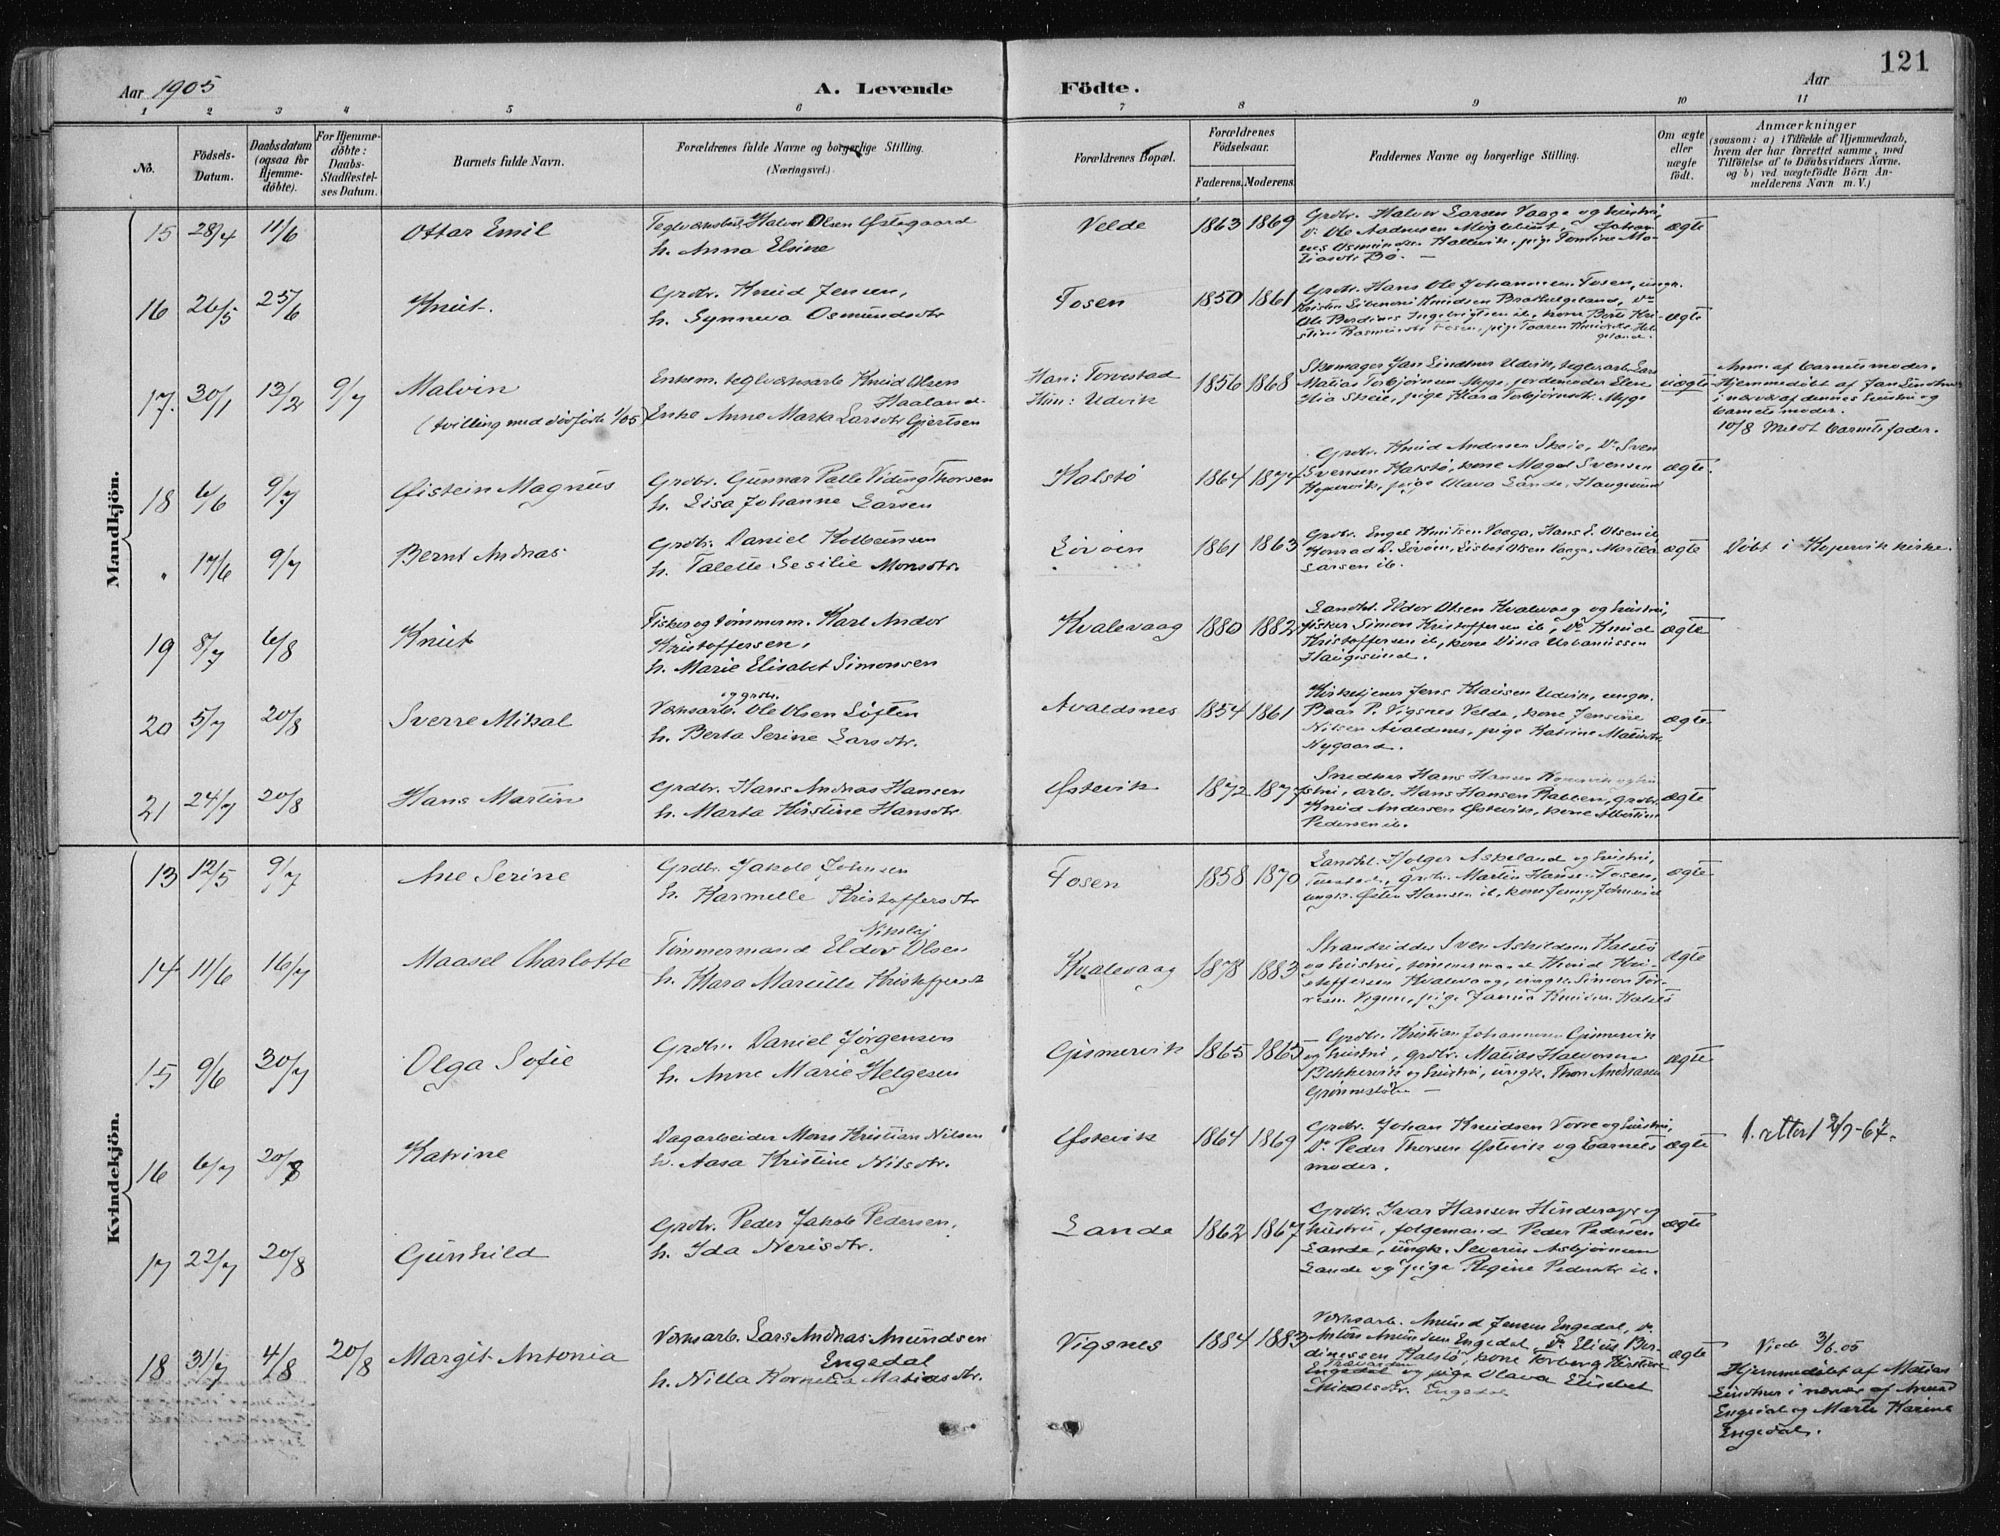 121
Aar 1905 A. Levende Födte. Aar
1 2 3 4 5 6 7 8 9 10 11
No.
Födsels-Datum.
Daabsdatum (ogsaa for Hjemmedöbte).
For Hjemmedöbte: Daabs-Stadfæstelses Datum.
Barnets fulde Navn.
Forældrenes fulde Navne og borgerlige Stilling. (Næringsvei.)
Forældrenes Bopæl.
Forældrenes Födselsaar.
Faderens. Moderens.
Faddernes Navne og borgerlige Stilling.
Om ægte eller uægte födt.
Anmærkninger
(saasom: a) i Tilfælde af Hjemmedaab,
hvem der har forrettet samme, med
Tilföielse af to Daabsvidners Navne.
og b) ved uægtefödte Börn An-
melderens Navn m. V.)
Mandkjön.
15 28/4 11/6 Ottar Emil
Teglværksarb. Halvor Olsen Østegaard
h. Anna Elsine
Velde 1863 1869
Grdbr. Halvor Larsen Vaage og hustru,
ægte
16 26/5 25/6 Knut.
Grdbr. Knud Jensen,
h. Synneva Osmundsdtr
Fosen 1850 1861
Grdbr. Hans Ole Johannesen Fosen, ungk.
ægte
17. 30/1 13/2 9/7 Malvin
(tvilling med dødfødt 1/05)
Enkem. teglværksarb Knud Olsen
Haaland.
Enke Anne Marta Larsdtr Gjertsen
Han: Torvestad
Hun: Udvik
1856 1868
Skomager Jan Lindtner Udvik, teglværksarb. Lars
Matias Torbjørnsen Myge, jordemoder Elene
Skeie, pige Klara Torbjørnsdtr. Myge
uægte
Anm. af barnets moder.
Hjemmedøbt af Jan Lindtner
i nærvær af dennes hustru og
barnets moder.
10/8 Meldt barnets fader.
18 6/6 9/7 Øistein Magnus
Grdbr. Gunnar Palle Viding Thorsen
h. Lisa Johanne Larsen
Kalstø 1864 1874
Grdbr. Knud Andersen Skeie, Do Sven
Svensen Kalstø, kone Magel Svensen
Kopervik, pige Olava Lande, Haugesund
ægte.
" 17/6 9/7 Bernt Andreas.
Grdbr. Daniel Kolbeinsen
h. Talette Sesilie Monsdtr.
1861 1863
Grdbr. Engel Knutsen Vaaga, Hans E. Olsen ib
Larsen ib.
ægte
Døbt i Kopervik kirke.
19 8/7 6/8 Knut
Fisker og tømmerm. Karl Andor
Kristoffersen,
h. Marie Elisabet Simonsen
Kvalevaag 1880 1882
Landhl. Eldor Olsen Kvalevaag og hustru,
fisker Simon Kristoffersen ib, Do Knud
Kristoffersen ib, kone Dina Urbanussen
Haugesund.
ægte
20 5/7 20/8 Sverre Mikal
og grdbr.
Værksarb. Ole Olsen Løften
h. Berta Serine Larsdtr.
Avaldsnes 1854 1861
Kirketjener Jens Klausen Udvik, ungk.
Baar P. Vigsnes Velde, kone Jensine
Nilsen Avaldsnes, pige Katrine
Nygaard.
ægte
21 24/7 20/8 Hans Martin
Grdbr. Hans Andreas Hansen
h. Marta Kirstine Hansdtr.
Østevik 1872 1877
Snedker Hans Hansen Kopervik og hu-
stru, arb. Hans Hansen Ratten, grdbr.
Knud Andersen Østevik, kone
Pedersen ib.
ægte
Kvindekjön.
13 12/5 9/7 Ane Serine
Grdbr. Jakob Johnsen
h. Karmelle Kristoffersdtr
Fosen 1858 1870
Landhl. Holger Askeland og hustru,
grdbr. Martin Hansen Fosen,
ungk. Østen Hansen ib, kone Jenny
ægte
14 11/6 16/7 Maasel Charlotte
Nikolaj
Tømmermand Eldor Olsen
h. Klara Mareille Kristoffersdt
Kvalevaag 1878 1883
Strandridder Sven Askildsen Kalstø
og hustru, tømmermand Knud Kri-
stoffersen Kvalevaag, ungk. Simon
ægte
15 9/6 30/7 Olga Sofie
Grdbr. Daniel Jørgensen
h. Anne Marie Helgesen
Gismervik 1865 1865
Grdbr. Kristian Johannesen Gismervik
og hustru, grdbr. Matias Halvorsen
Bekkevik og hustru, ungk. Thor Andreasen
ægte
16 6/7 20/8 Katrine
Dagarbeider Mons Kristian Nilsen
h. Aasa Kristine Nilsdtr.
Østevik 1864 1869
Grdbr. Johan Knudsen Vorre og hustru,
Do Peder Thorsen Østevik og barnets
moder.
ægte
f. attest 2/9-67.
17 22/7 20/8 Gunhild
Grdbr. Peder Jakob Pedersen,
h. Ida Nerisdtr.
Lande 1862 1867
Grdbr. Ivar Hansen Hinderager og
hustru, folgemand Peder Pedersen
Lande, ungk. Severin Asbjørnsen
Lande og pige Regine Pedersdtr ib.
ægte
18 31/7 4/8 20/8 Margit Antonia
Værksarb. Lars Andreas Amundsen
Engedal
h. Nilla Kornelia Matiasdtr.
Vigsnes 1884 1883
Værksarb. Amund Jensen Engedal, do
Anton Amundsen Engedal, Do Elius Ber-
dinessen Kalstø, kone Torberg Kirstine
Engedal og pige Olava Elisabet
Mikalsdtr. Engedal
ægte
Viede 3/6.05
Hjemmedøbt af Matias
Lindtner i nærvær af Amund
Engedal og Marte Karine
Engedal.